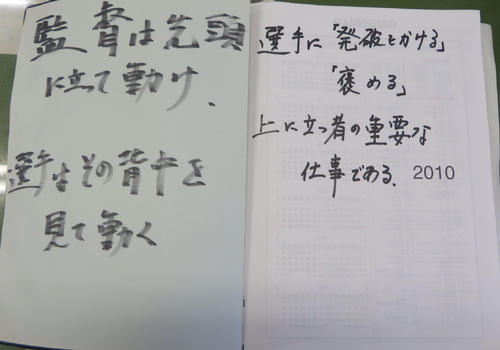 監督は先頭
に立て動け、
選手はその背中を
見て動く
選手に「発破をかける」
「褒める」
上に立つ者の重要な
仕事である、
2010